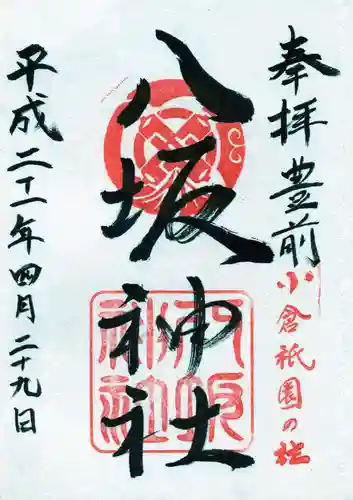 奉拝 豊前
小倉祇園の社
八坂神社
平成二十一年四月二十九日
八坂神社